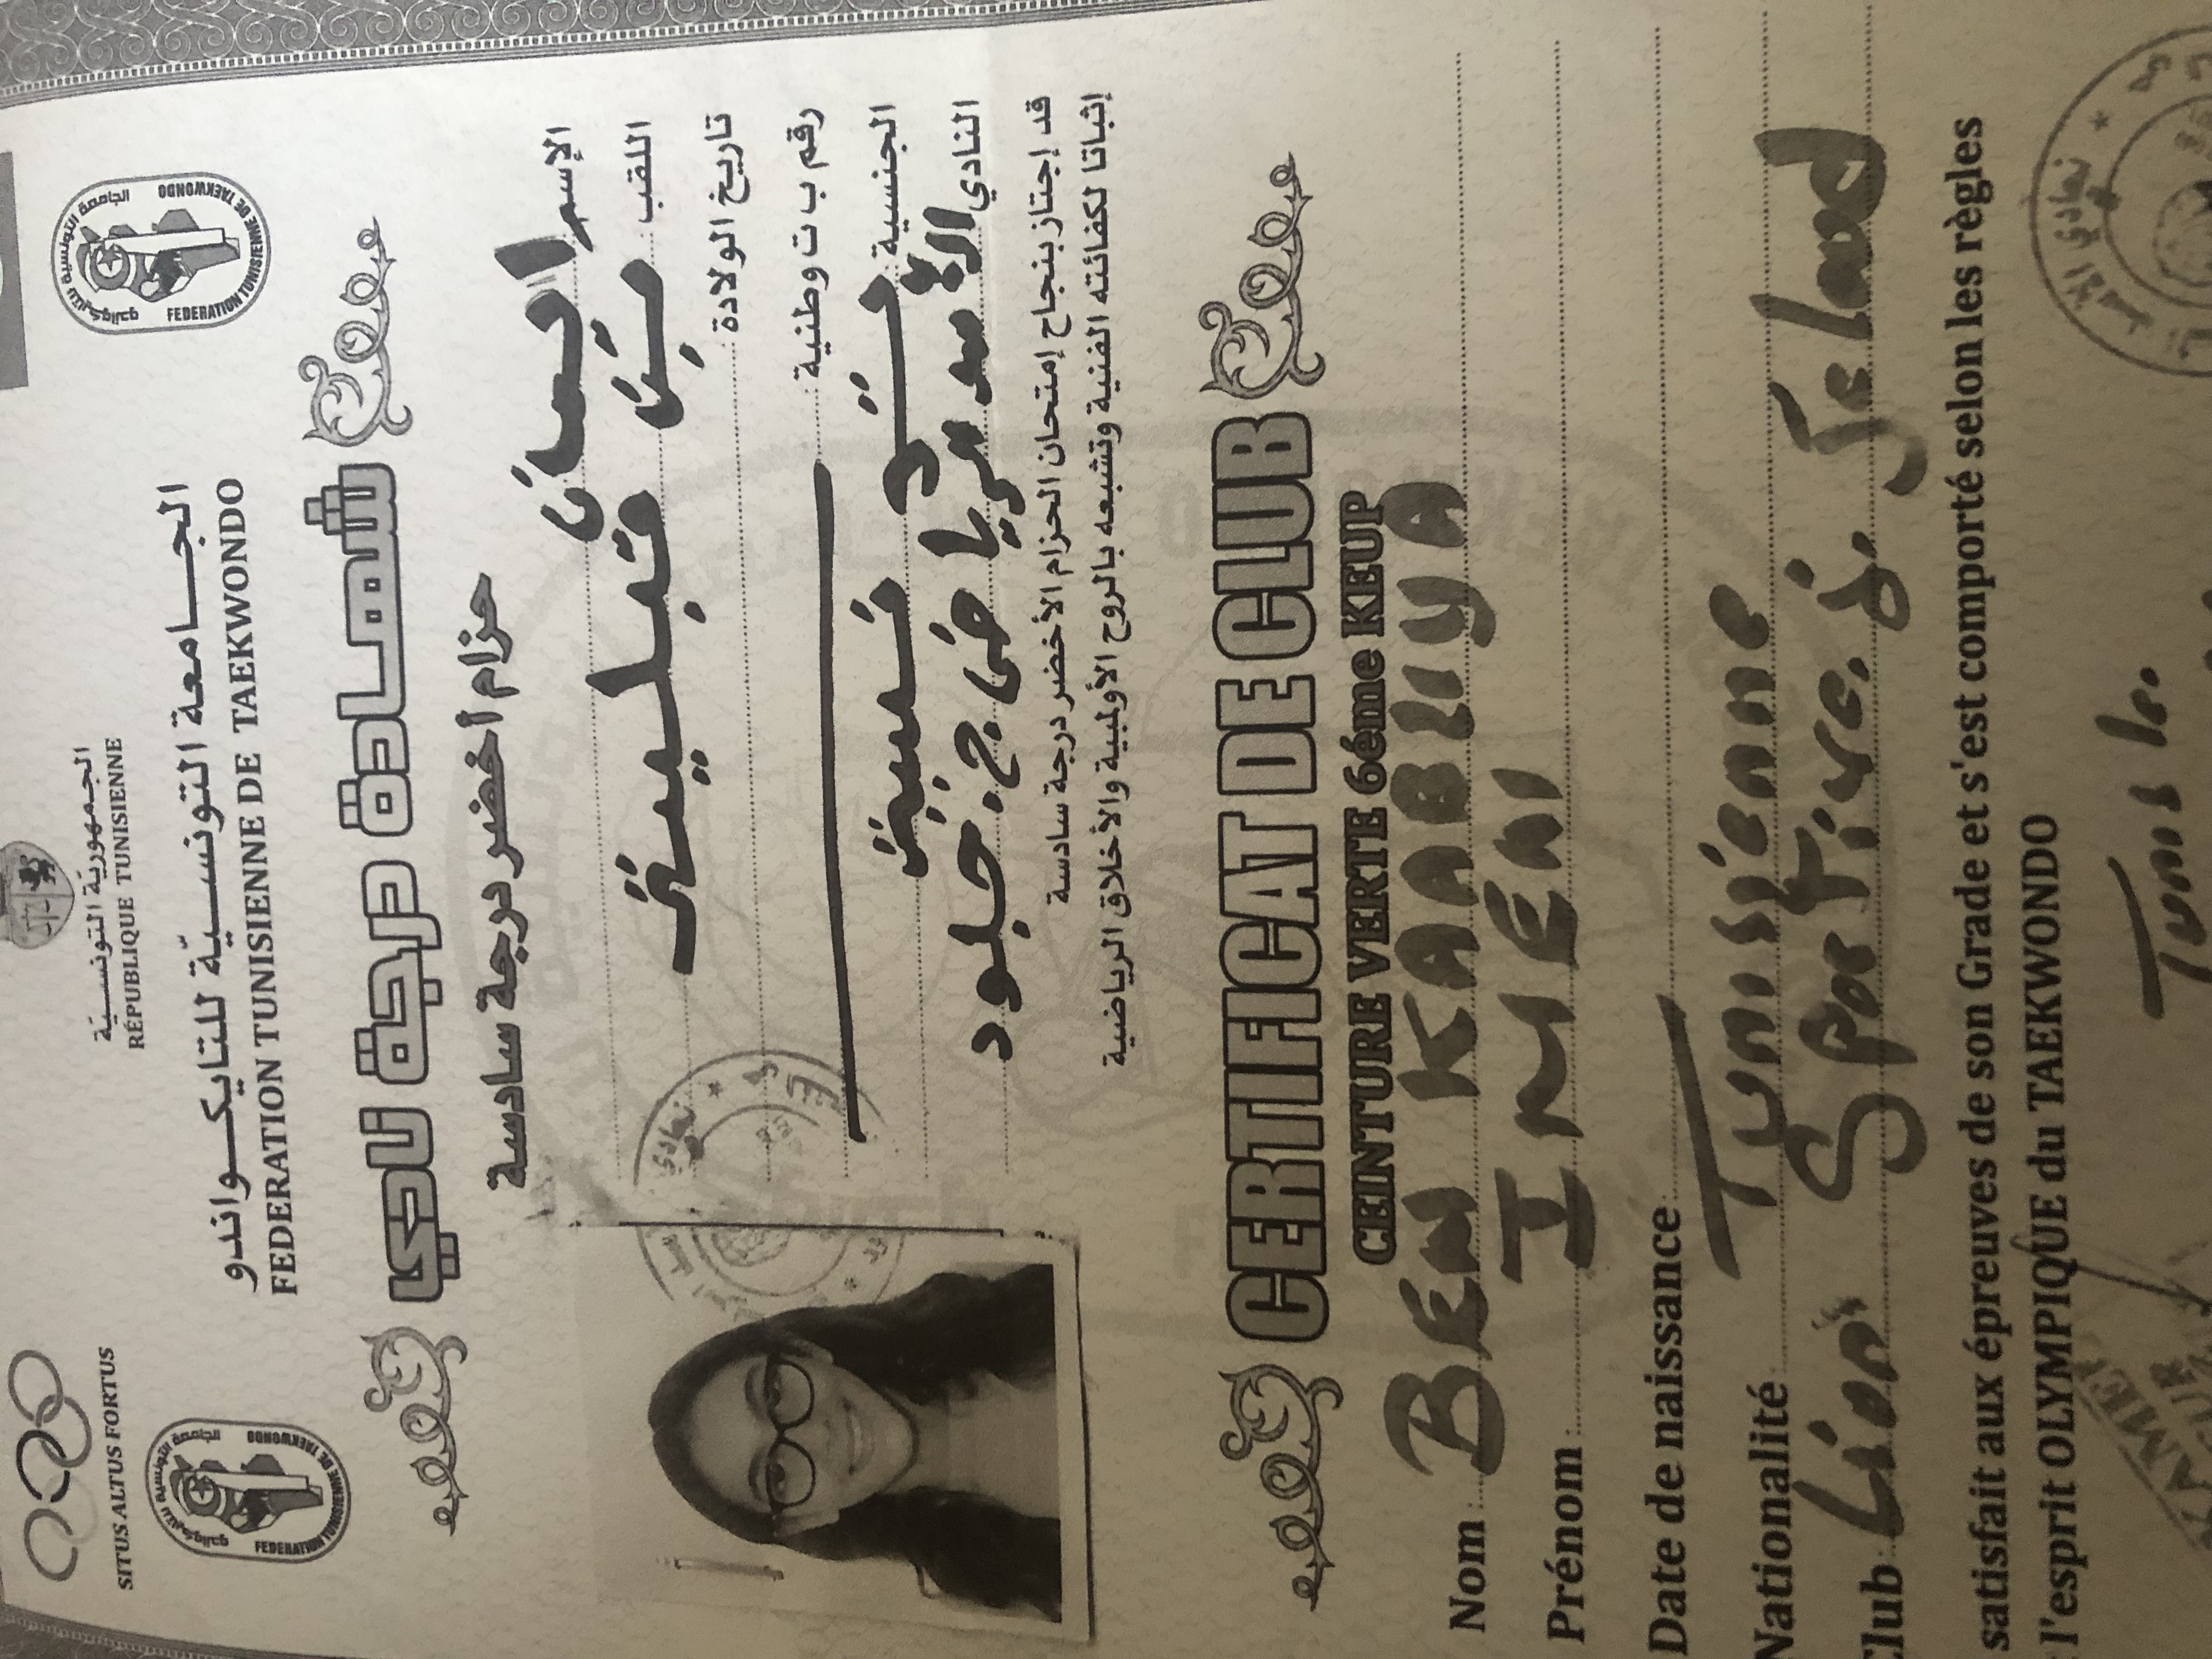 الجمهورية التونسية
RÉPUBLIQUE TUNISIENNE
SITUS ALTUS FORTUS
الجامعة التونسية للتايكواندو
FEDERATION TUNISIENNE DE TAEKWONDO
الجامعة التونسية للتايكواندو
FEDERATION TUNISIENNE DE TAEKWONDO
الجامعة التونسية للتايكواندو
FEDERATION TUNISIENNE DE TAEKWONDO
شهادة درجة نادي
حزام أخضر درجة سادسة
الإسم
اللقب : بن قبلية
تاريخ الولادة :
رقم ب ت وطنية :
الجنسية : تونسية
النادي الأسد الرياضي ج. جلود
قد إجتاز بنجاح إمتحان الحزام الأخضر درجة سادسة
إثباتا لكفائته الفنية وتشبعه بالروح الأولمبية والأخلاق الرياضية
CERTIFICAT DE CLUB
CEINTURE VERTE 6éme KEUP
Nom : BEN KABLIYA
Prénom : IMEN
Date de naissance
Nationalité Tunisienne
Club : Lion Sportive. J. Jeloud
satisfait aux épreuves de son Grade et s'est comporté selon les règles
l'esprit OLYMPIQUE du TAEKWONDO
Tunis le.